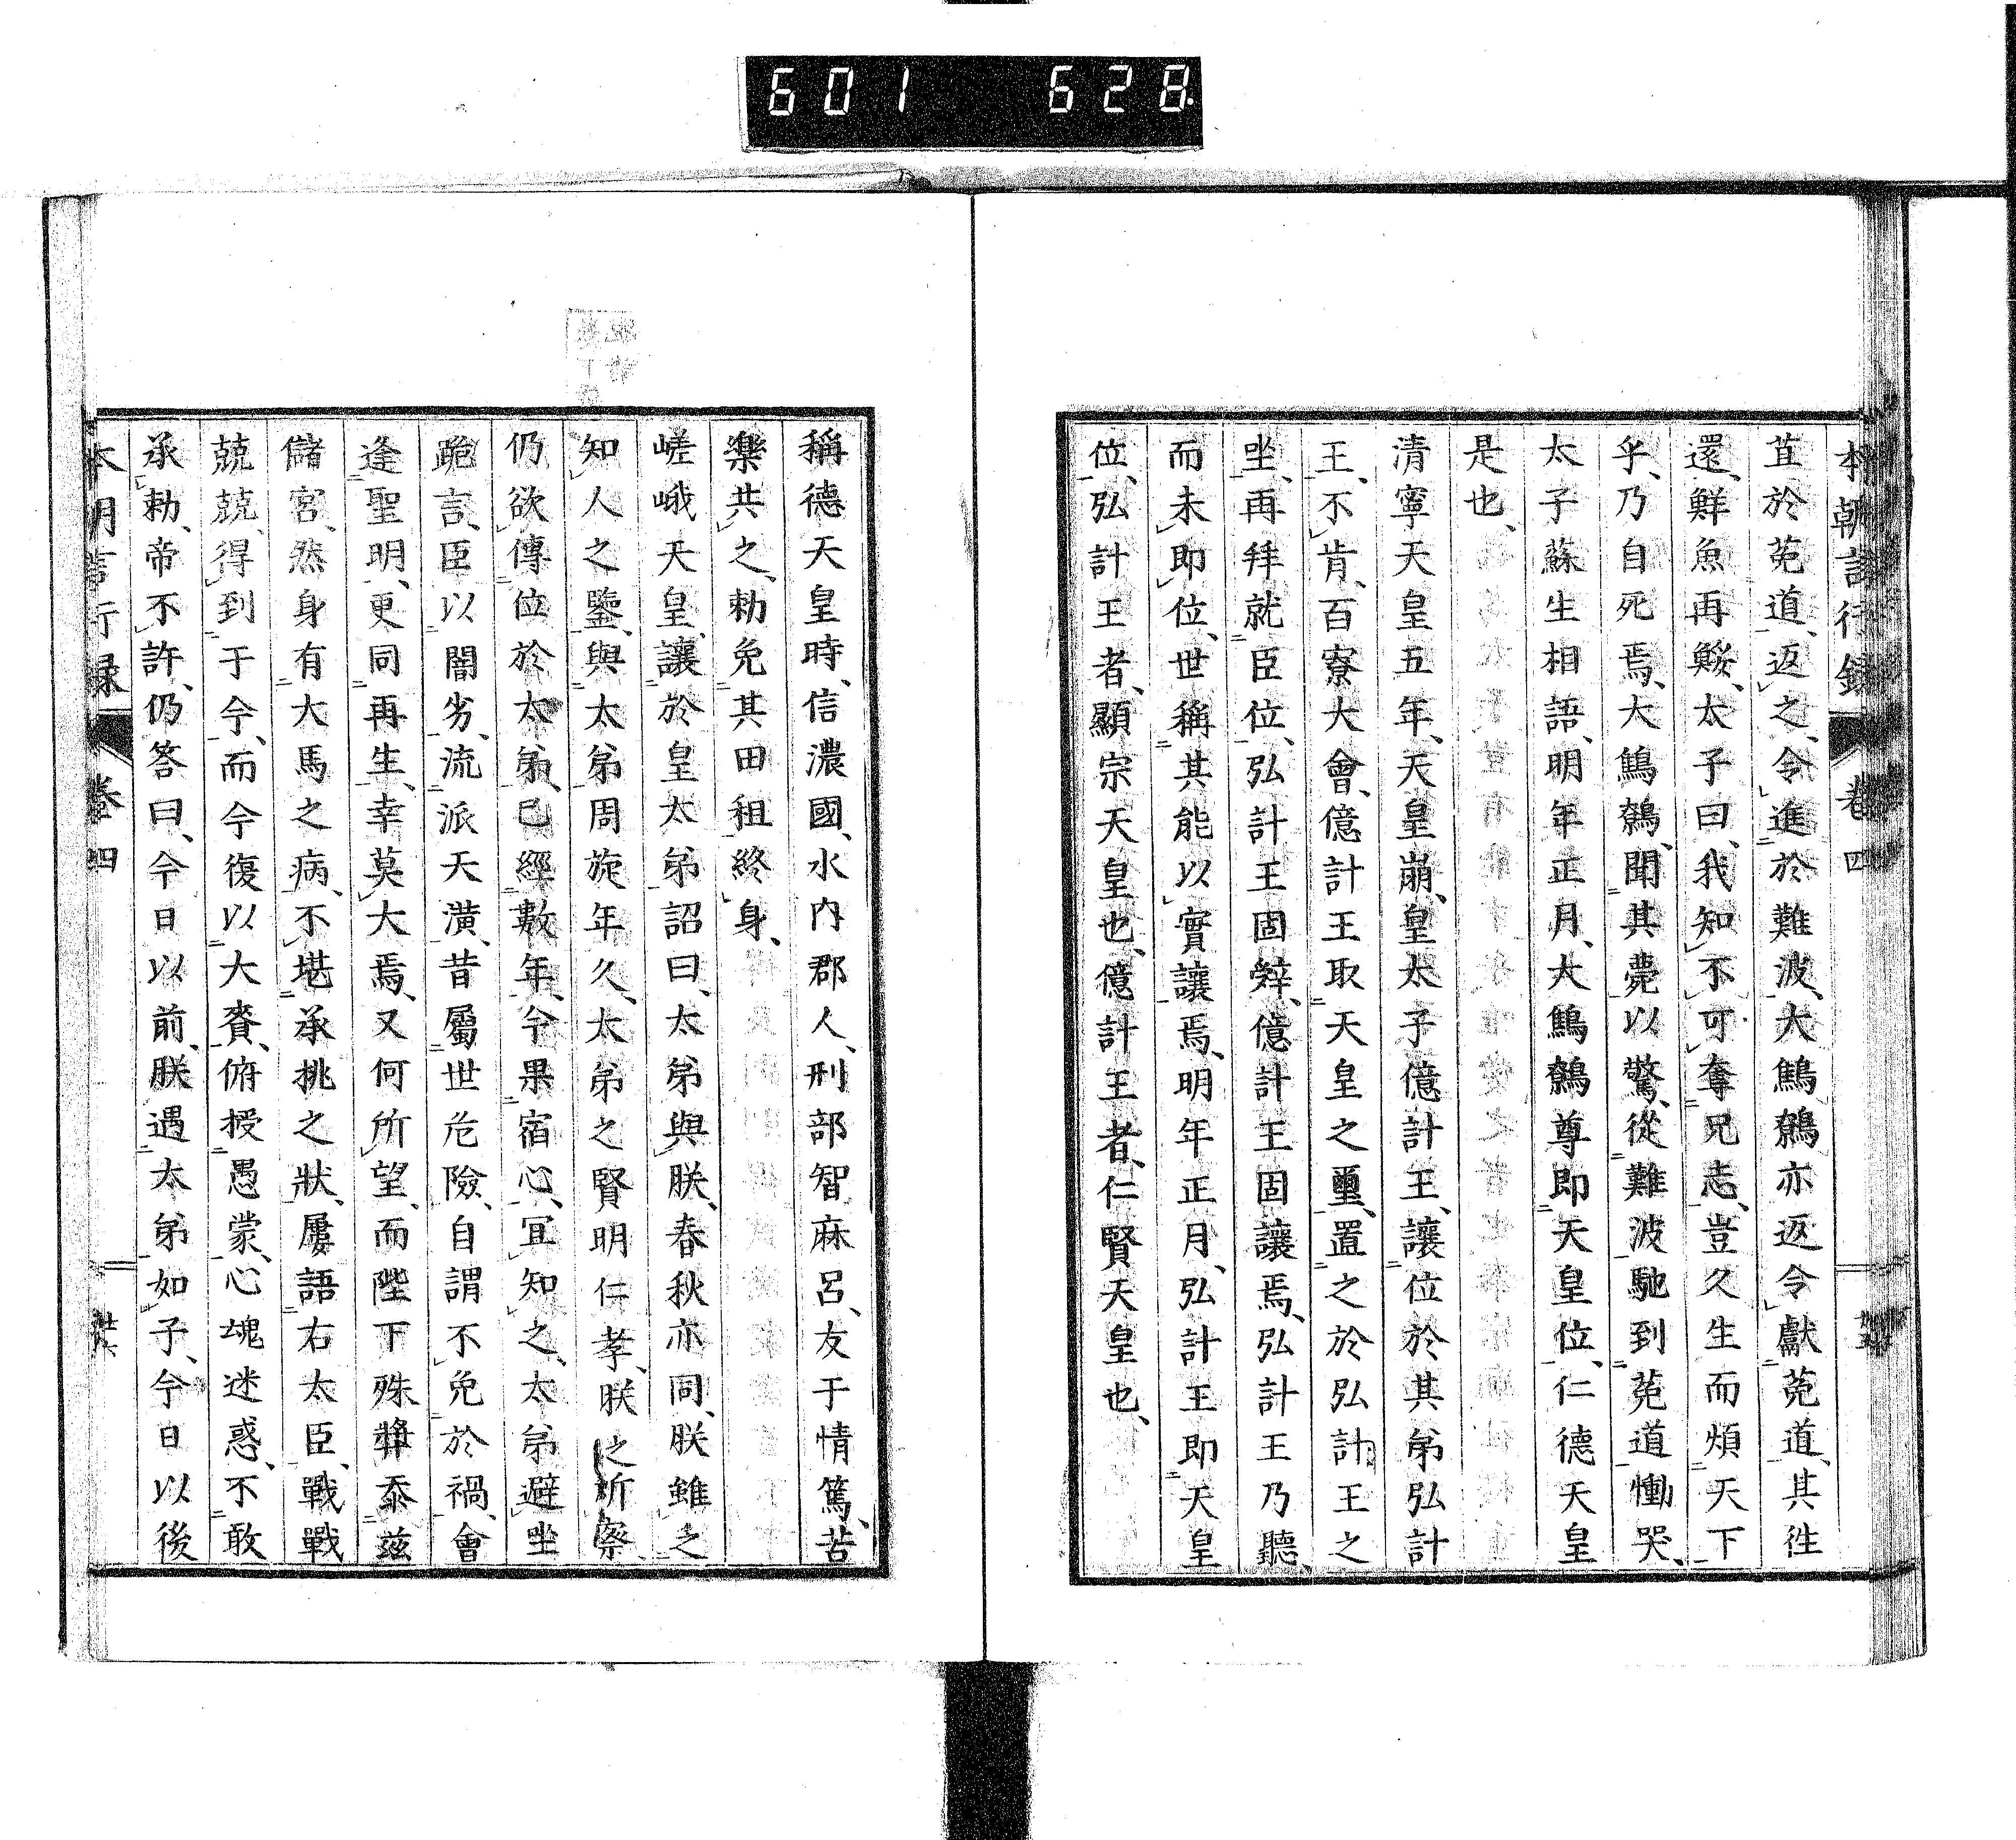 601 628
本朝言行録 卷四
苴於菟道、返之、令進於難波、大鷦鷯亦返令獻菟道、其徃
還、鮮魚再鯘、太子曰、我知不可奪兄志、豈久生而煩天下
乎、乃自死焉、大鷦鷯、聞其薨以驚、從難波馳到菟道慟哭、
太子蘇生相語、明年正月、大鷦鷯尊即天皇位、仁德天皇
是也、
清寧天皇五年、天皇崩、皇太子億計王、讓位於其弟弘計
王、不肯、百寮大會、億計王取天皇之璽、置之於弘計王之
坐、再拜就臣位、弘計王固辤、億計王固讓焉、弘計王乃聽、
而未即位、世稱其能以實讓焉、明年正月、弘計王即天皇
位、弘計王者、顯宗天皇也、億計王者、仁賢天皇也、
稱德天皇時、信濃國、水內郡人、刑部智麻呂、友于情篤、苦
樂共之、勅免其田租終身、
嵯峨天皇、讓於皇太弟詔曰、太弟與朕、春秋亦同、朕雖乏
知人之鑒、與太弟周旋年久、太弟之賢明仁孝、朕之所察、
仍欲傳位於太弟、已經數年、今果宿心、冝知之、太弟避坐
跪言、臣以闇劣、流派天潢、昔屬世危險、自謂不免於禍、會
逢聖明、更同再生、幸莫大焉、又何所望、而陛下殊奬忝茲
儲宮、然身有犬馬之病、不堪承挑之狀、屢語右大臣、戰戰
兢兢、得到于今、而今復以大賚、俯授愚蒙、心魂迷惑、不敢
承勅、帝不許、仍答曰、今日以前、朕遇太弟如子、今日以後
本朝言行録 卷四 廿六